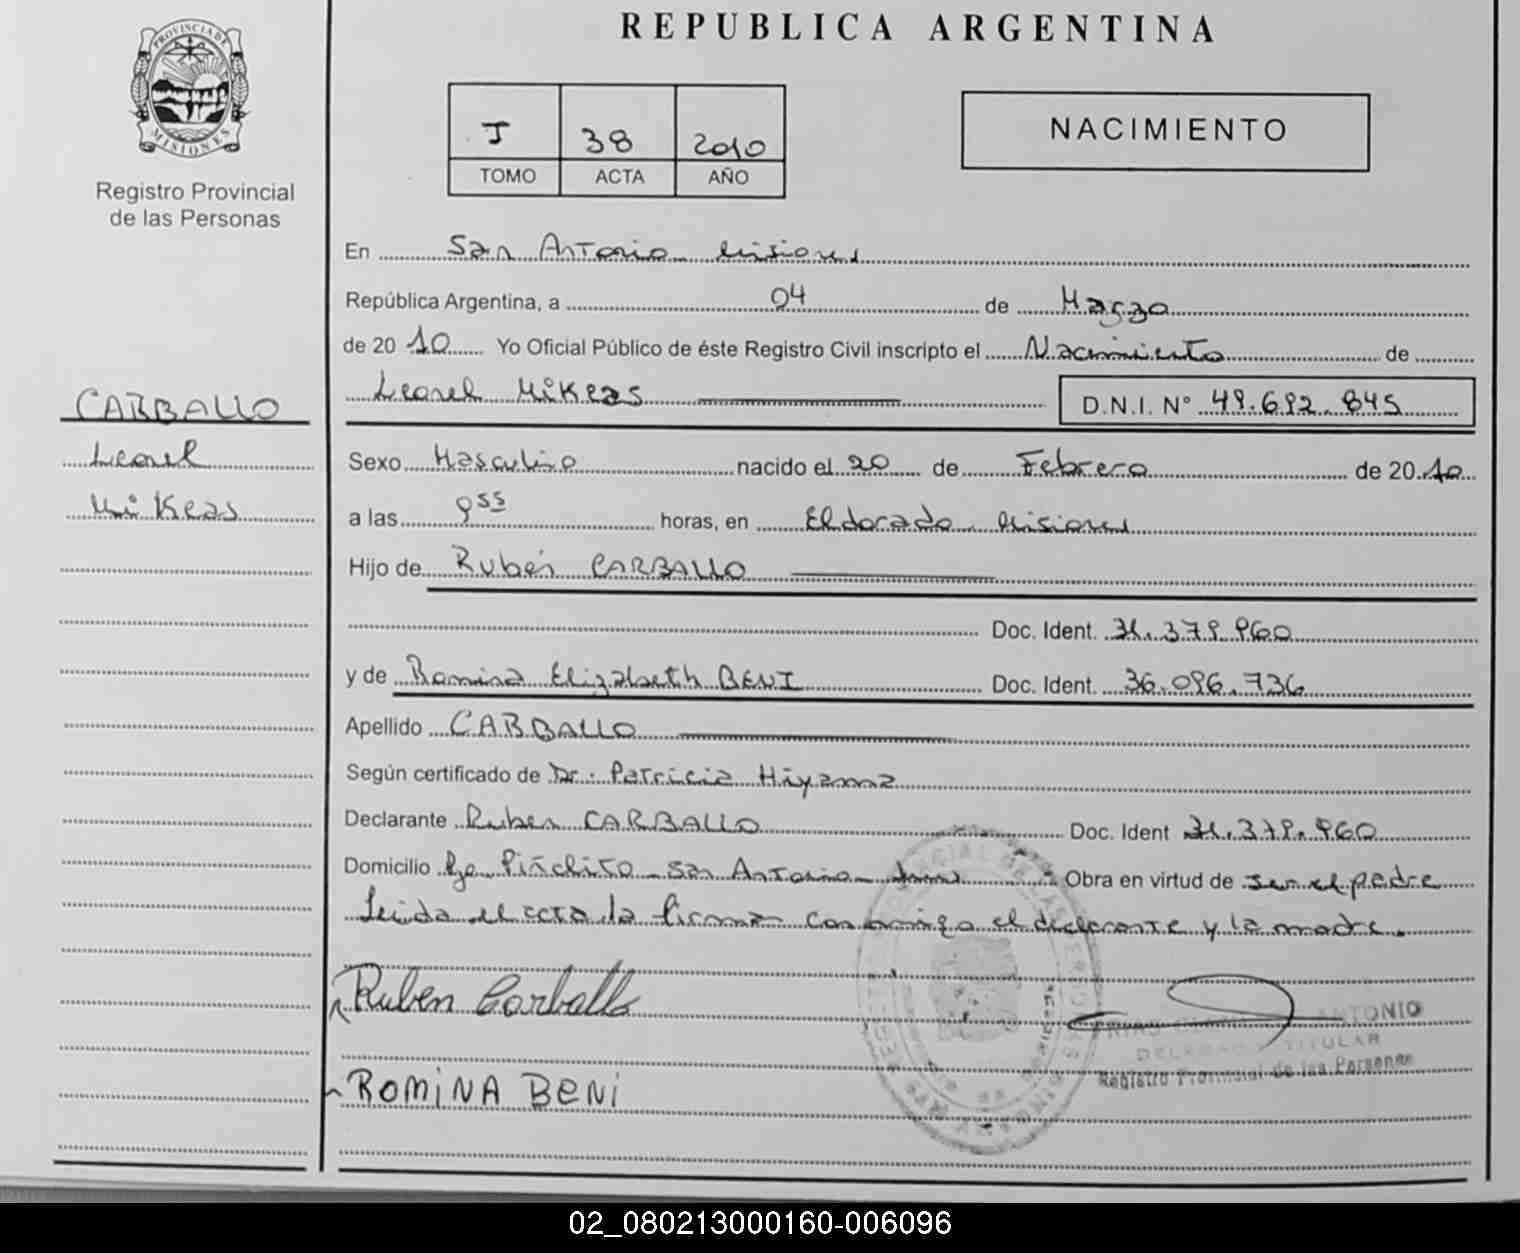 REPUBLICA ARGENTINA
PROVINCIA DE MISIONES
Registro Provincial
de las Personas
I 38 2010
TOMO ACTA AÑO
NACIMIENTO
En San Antonio Misiones
República Argentina, a 04 de Marzo
de 20 10 Yo Oficial Público de éste Registro Civil inscripto el Nacimiento de
Leonel Mikeas D.N.I. N° 49.692.845
CARBALLO
Leonel
Mikeas
Sexo Masculino nacido el 20 de Febrero de 20 10
a las 9 55 horas, en Eldorado Misiones
Hijo de Rubén CARBALLO
Doc. Ident. 31.379.960
y de Romina Elizabeth BENI Doc. Ident. 36.096.736
Apellido CARBALLO
Según certificado de Dr. Patricia Hiyama
Declarante Ruben CARBALLO Doc. Ident 31.379.960
Domicilio Piñalito San Antonio Obra en virtud de ser el padre
Leida el acta la firman conmigo el declarante y la madre.
Ruben Carballo
ANTONIO
TITULAR
Registro Provincial de las Personas
ROMINA BENI
02_080213000160-006096